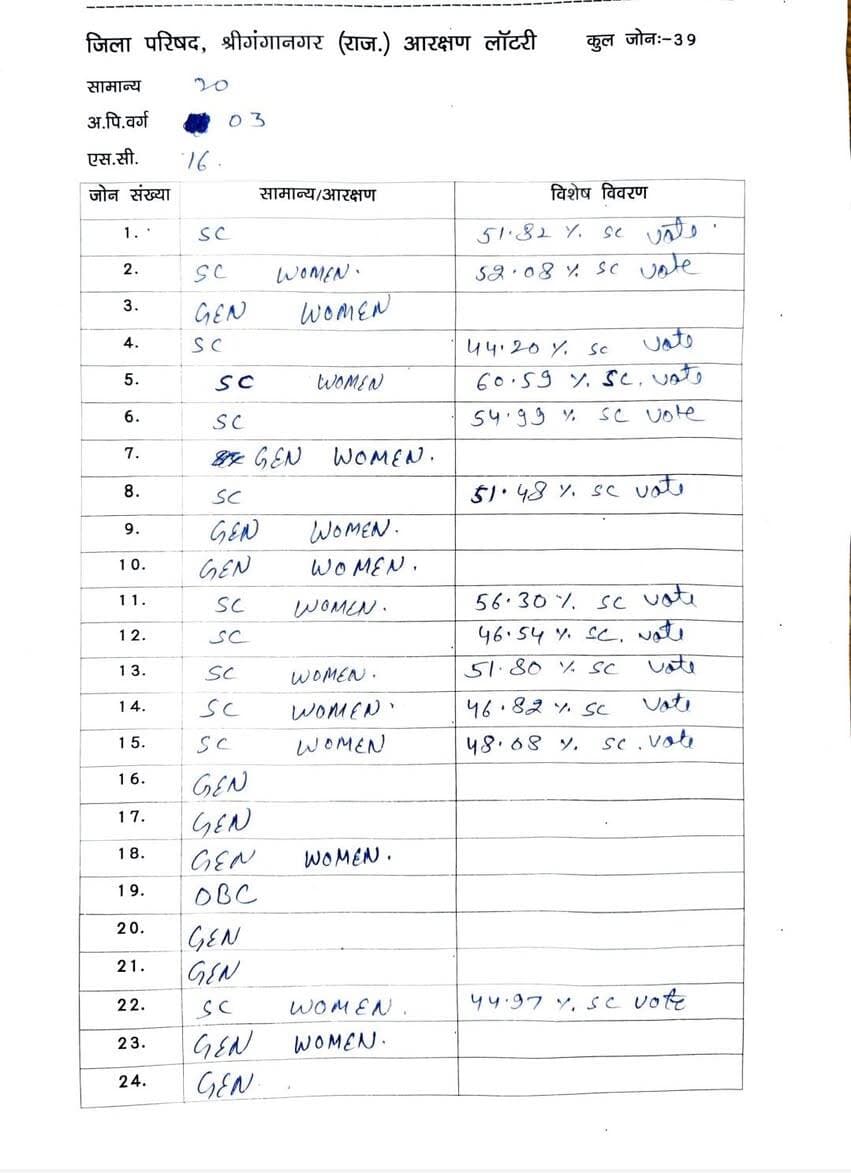 जिला परिषद, श्रीगंगानगर (राज.) आरक्षण लॉटरी कुल जोनः-39
सामान्य 20
अ.पि.वर्ग 03
एस.सी. 16.
जोन संख्या सामान्य/आरक्षण विशेष विवरण
1. SC 51.82 %. SC vote
2. SC WOMEN. 52.08 %. SC vote
3. GEN WOMEN
4. SC 44.20 %. SC vote
5. SC WOMEN 60.59 %. SC. vote
6. SC 54.99 %. SC vote
7. GEN WOMEN.
8. SC 51.48 %. SC vote
9. GEN WOMEN.
10. GEN WOMEN.
11. SC WOMEN. 56.30 %. SC vote
12. SC 46.54 %. SC. vote
13. SC WOMEN. 51.80 %. SC vote
14. SC WOMEN. 46.82 %. SC vote
15. SC WOMEN 48.68 %. SC. vote
16. GEN
17. GEN
18. GEN WOMEN.
19. OBC
20. GEN
21. GEN
22. SC WOMEN. 44.97 %. SC vote
23. GEN WOMEN.
24. GEN.